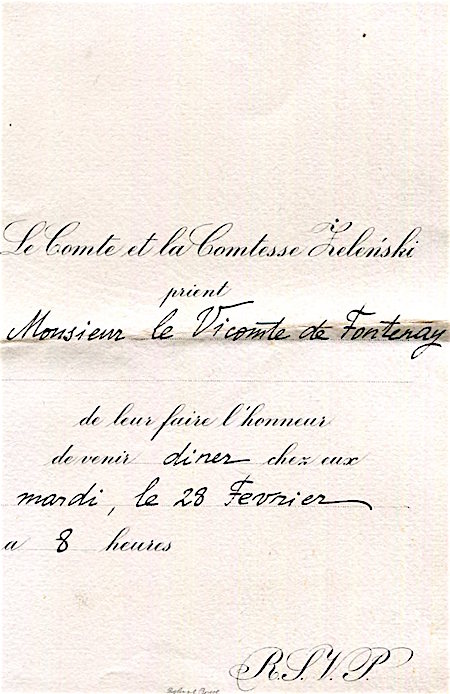 Le Comte et la Comtesse Żeleński
prient
Monsieur le Vicomte de Fontenay
de leur faire l'honneur
de venir diner chez eux
mardi, le 28 Fevrier
a 8 heures
R.S.V.P.